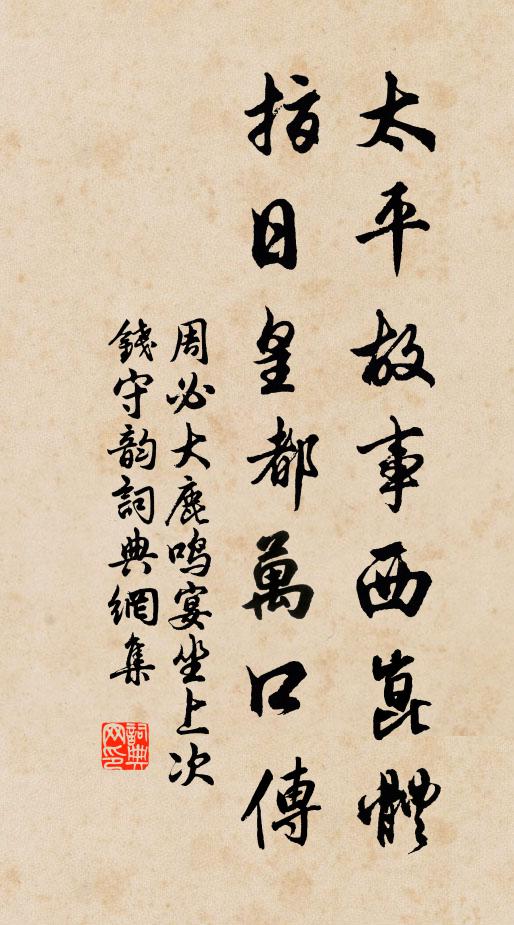 太平故事西崑體
指日皇都萬口傳
周必大鹿鳴宴坐上次
錢守韵詞典網集
詞典
网印